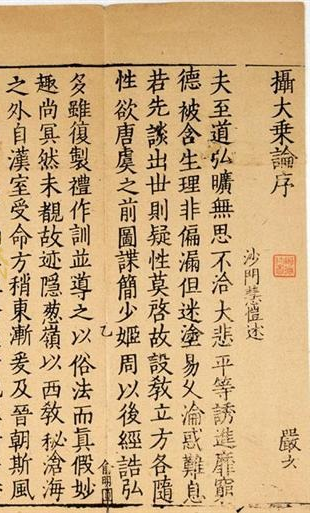 攝大乘論序
沙門慧愷述
嚴
夫至道弘曠無思不洽大悲平等誘進靡窮
德被含生理非偏漏但迷塗易乆淪惑難息
若先談出世則疑性莫啓故設敎立方各隨
性欲唐虞之前圖諜簡少姬周以後經誥弘
多雖復製禮作訓並導之以俗法而真假妙
趣尚冥然未覩故迹隱葱嶺以西敎秘滄海
之外自漢室受命方稍東漸爰及晉朝斯風